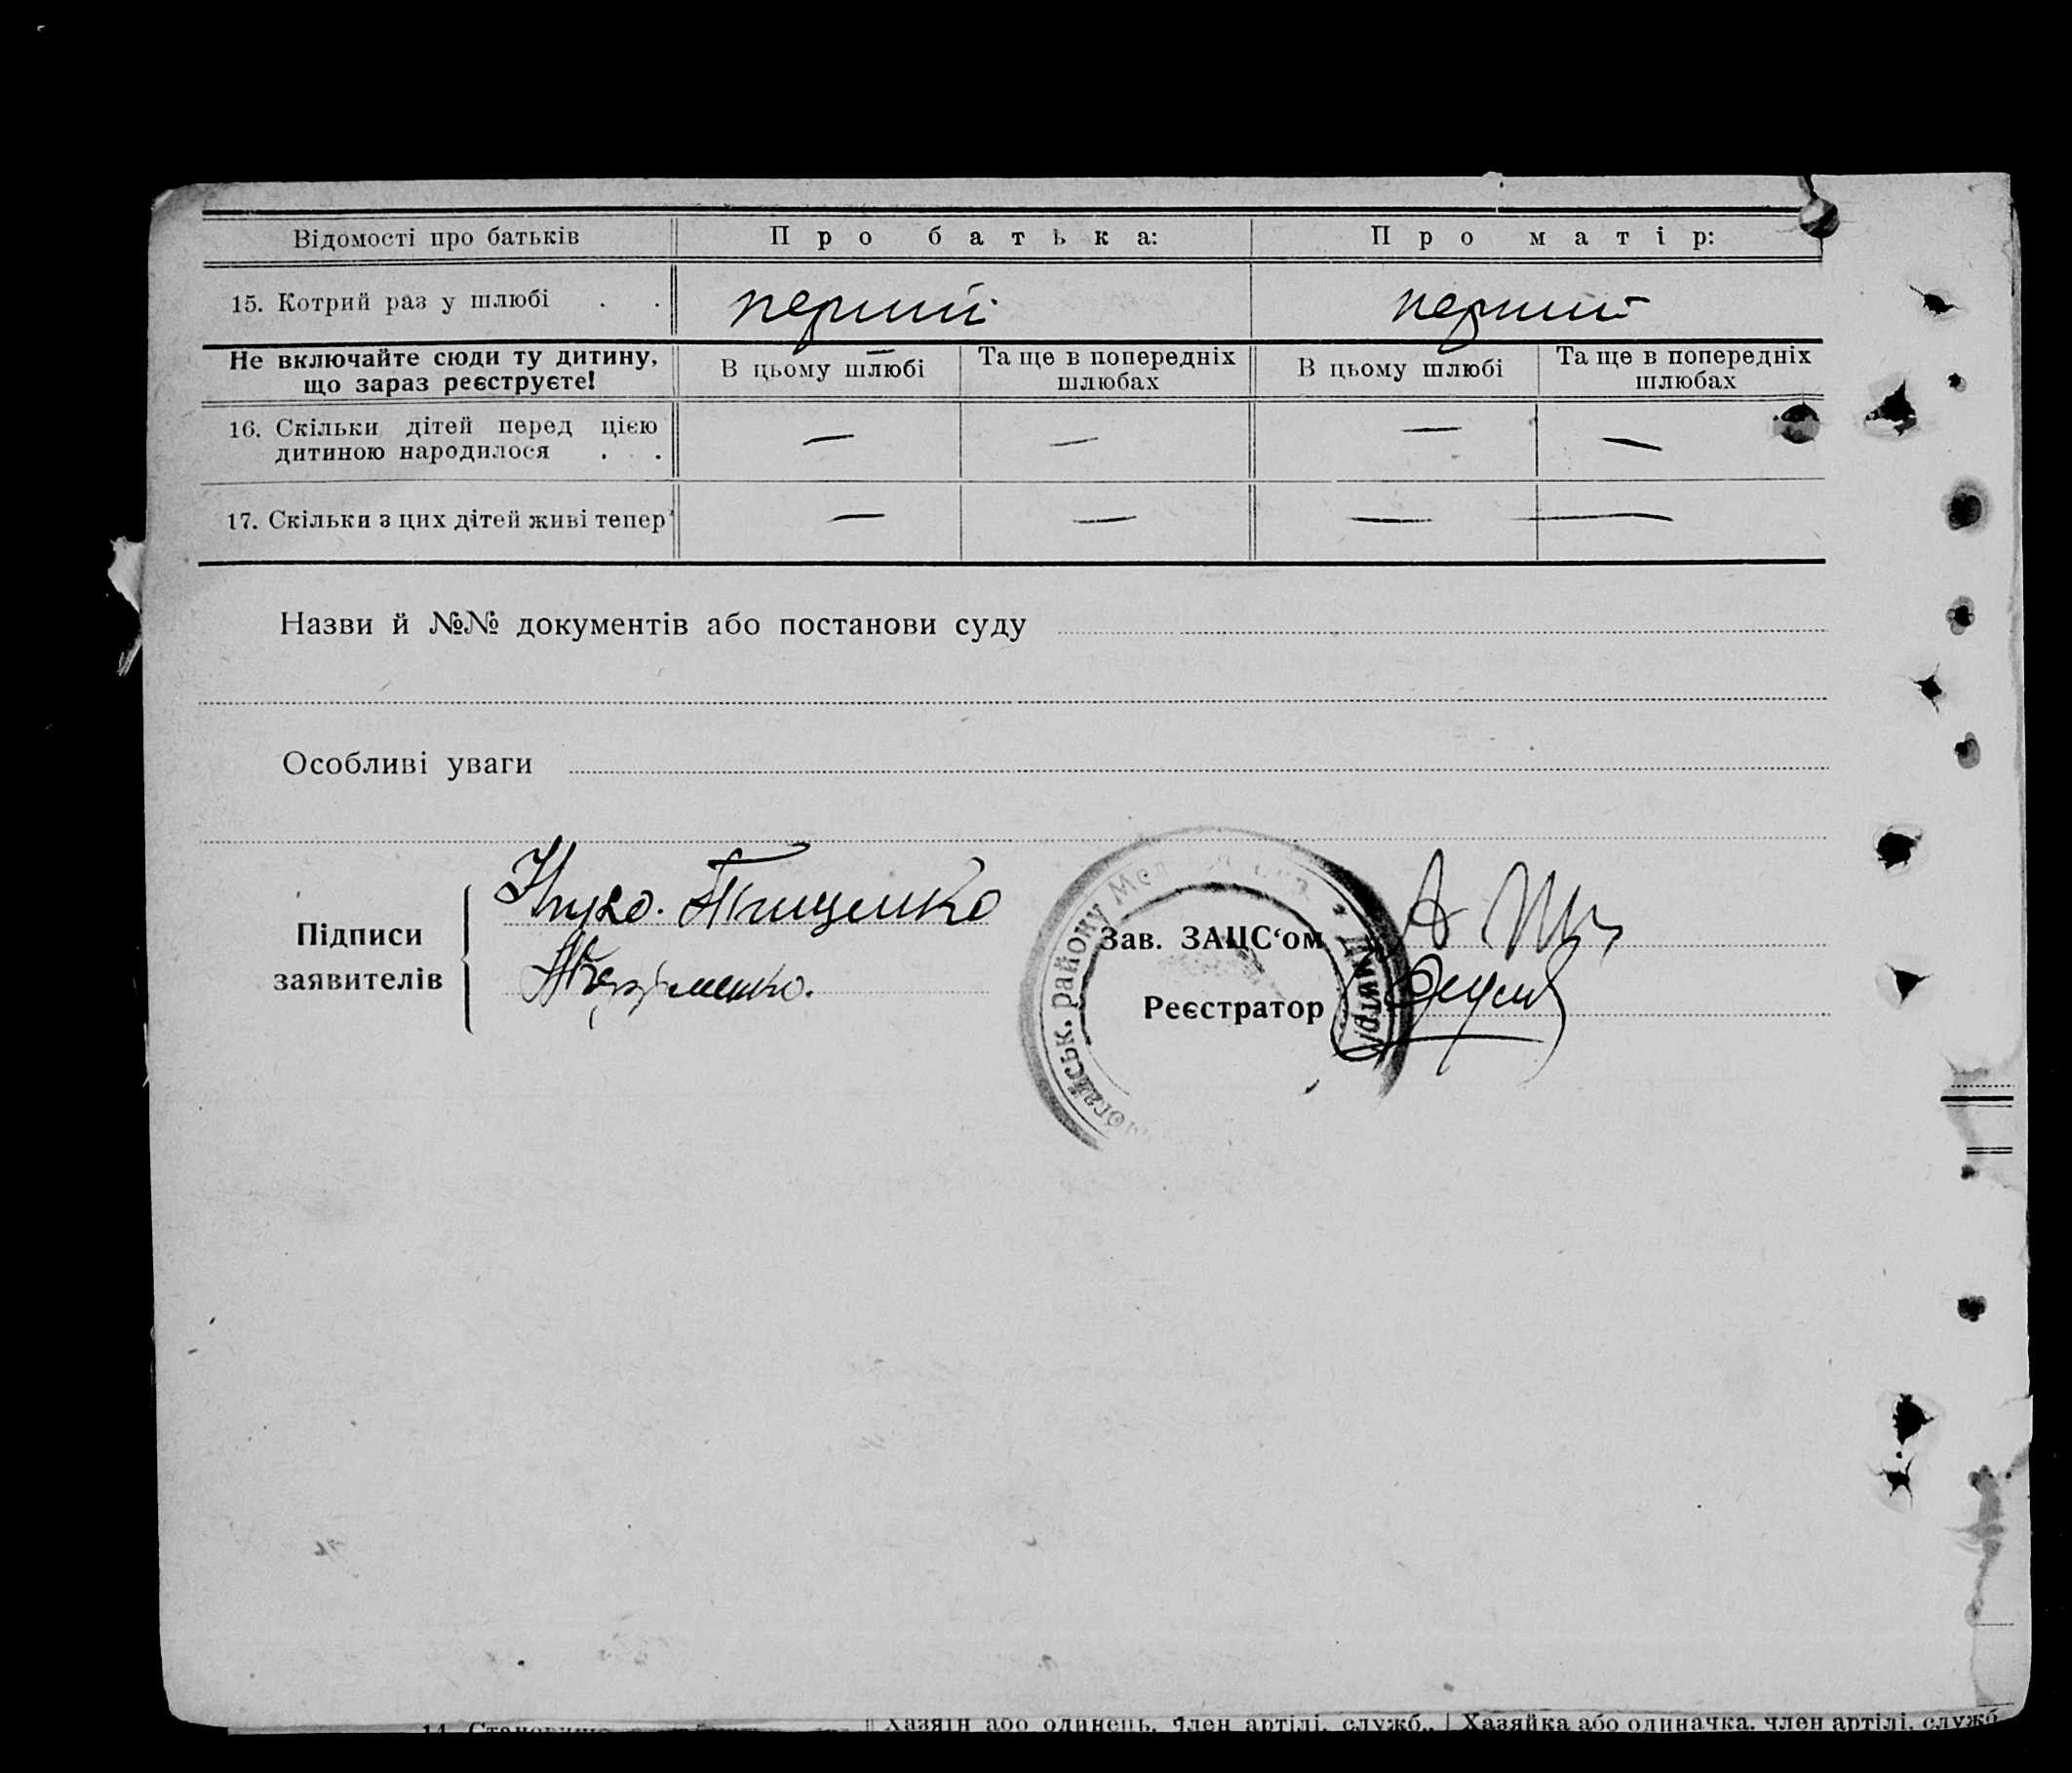 Відомості про батьків Про батька: Про матір:
15. Котрий раз у шлюбі . . перший перший
Не включайте сюди ту дитину, що зараз реєструєте! В цьому шлюбі Та ще в попередніх шлюбах В цьому шлюбі Та ще в попередніх шлюбах
16. Скільки дітей перед цією дитиною народилося . . . — — — —
17. Скільки з цих дітей живі тепер — — — —
Назви й №№ документів або постанови суду
Особливі уваги
Підписи заявителів
Тищенко
Зав. ЗАЦС‘ом
Реєстратор
району
14.
Хазяїн або одинець, член артілі, служб. Хазяйка або одиначка, член артілі, служб.